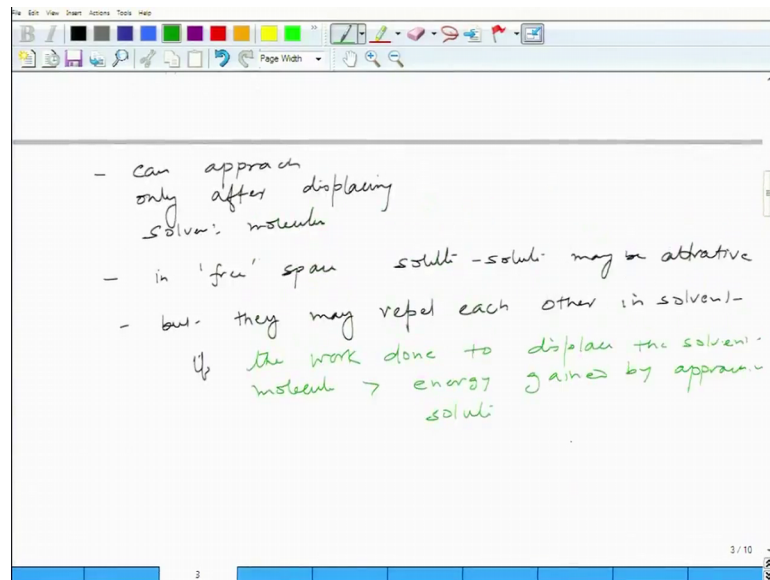 File Edit View Insert Actions Tools Help
B I
Page Width
- can approach
only after displacing
solvent molecules
- in 'free' space solute-solute may be attractive
- but they may repel each other in solvent
if the work done to displace the solvent
molecule > energy gained by approaching
solute
3 / 10
3